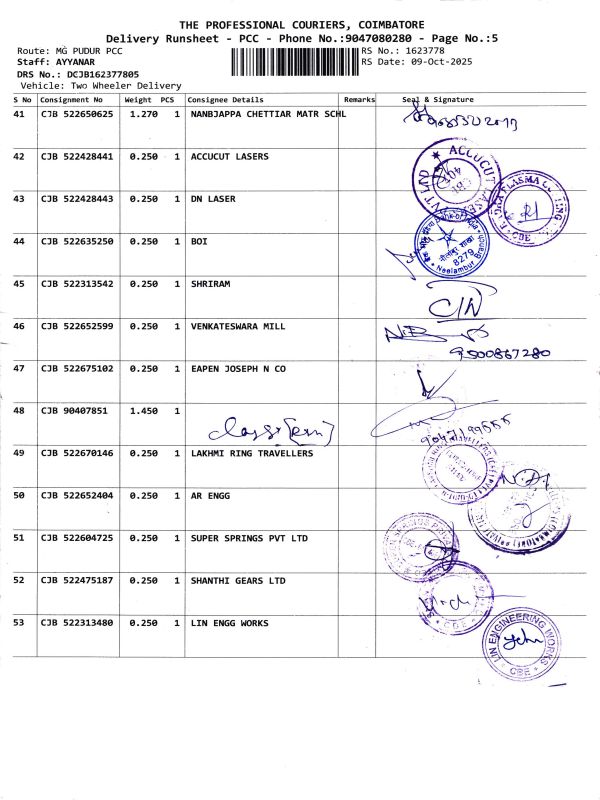 THE PROFESSIONAL COURIERS, COIMBATORE
Delivery Runsheet - PCC - Phone No.:9047080280 - Page No.:5
Route: MG PUDUR PCC
RS No.: 1623778
Staff: AYYANAR
RS Date: 09-Oct-2025
DRS No.: DCJB162377805
Vehicle: Two Wheeler Delivery
S No Consignment No Weight PCS Consignee Details Remarks Seal & Signature
41 CJB 522650625 1.270 1 NANBJAPPA CHETTIAR MATR SCHL
42 CJB 522428441 0.250 1 ACCUCUT LASERS
ACCUCUT LASE
43 CJB 522428443 0.250 1 DN LASER
PLASMA
CBE
44 CJB 522635250 0.250 1 BOI
8279
Neelambur Branch
45 CJB 522313542 0.250 1 SHRIRAM
46 CJB 522652599 0.250 1 VENKATESWARA MILL
9500867280
47 CJB 522675102 0.250 1 EAPEN JOSEPH N CO
48 CJB 90407851 1.450 1
49 CJB 522670146 0.250 1 LAKHMI RING TRAVELLERS
50 CJB 522652404 0.250 1 AR ENGG
51 CJB 522604725 0.250 1 SUPER SPRINGS PVT LTD
52 CJB 522475187 0.250 1 SHANTHI GEARS LTD
CBE
53 CJB 522313480 0.250 1 LIN ENGG WORKS
LIN ENGINEERING WORKS
CBE